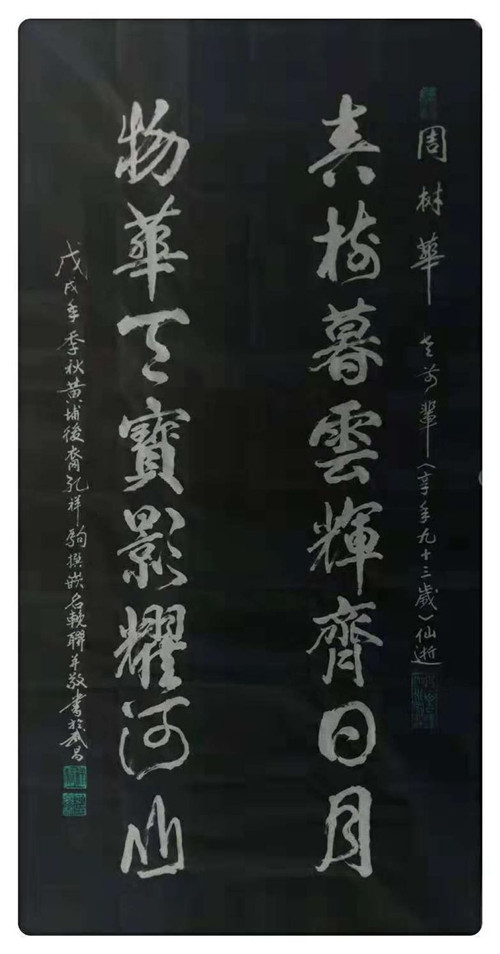 周樹華老前輩（享年九十三歲）仙逝
春樹暮雲輝齊日月
物華天寶影耀河山
戊戌年季秋黄埔後裔孔祥駒撰嵌名輓聯並敬書於武昌